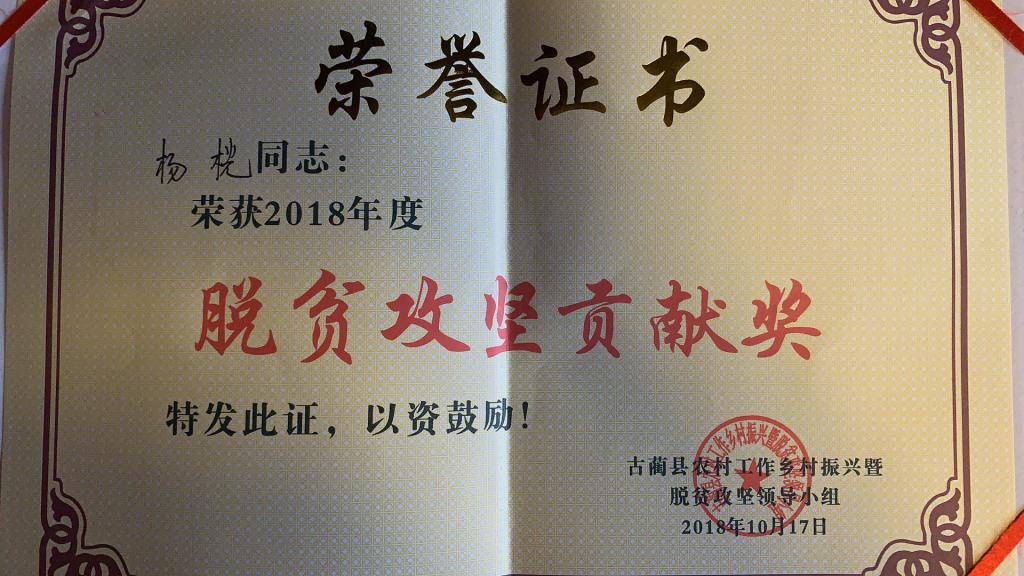 荣誉证书
杨桄同志：
荣获2018年度
脱贫攻坚贡献奖
特发此证，以资鼓励！
古蔺县农村工作乡村振兴暨
脱贫攻坚领导小组
2018年10月17日